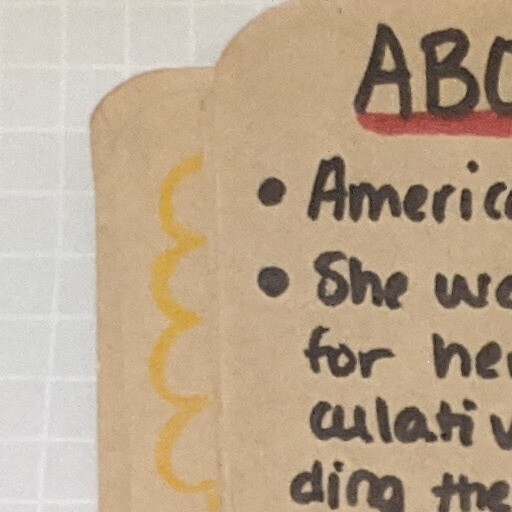 ABO
• Americ
• She wo
for her
culativ
ding the